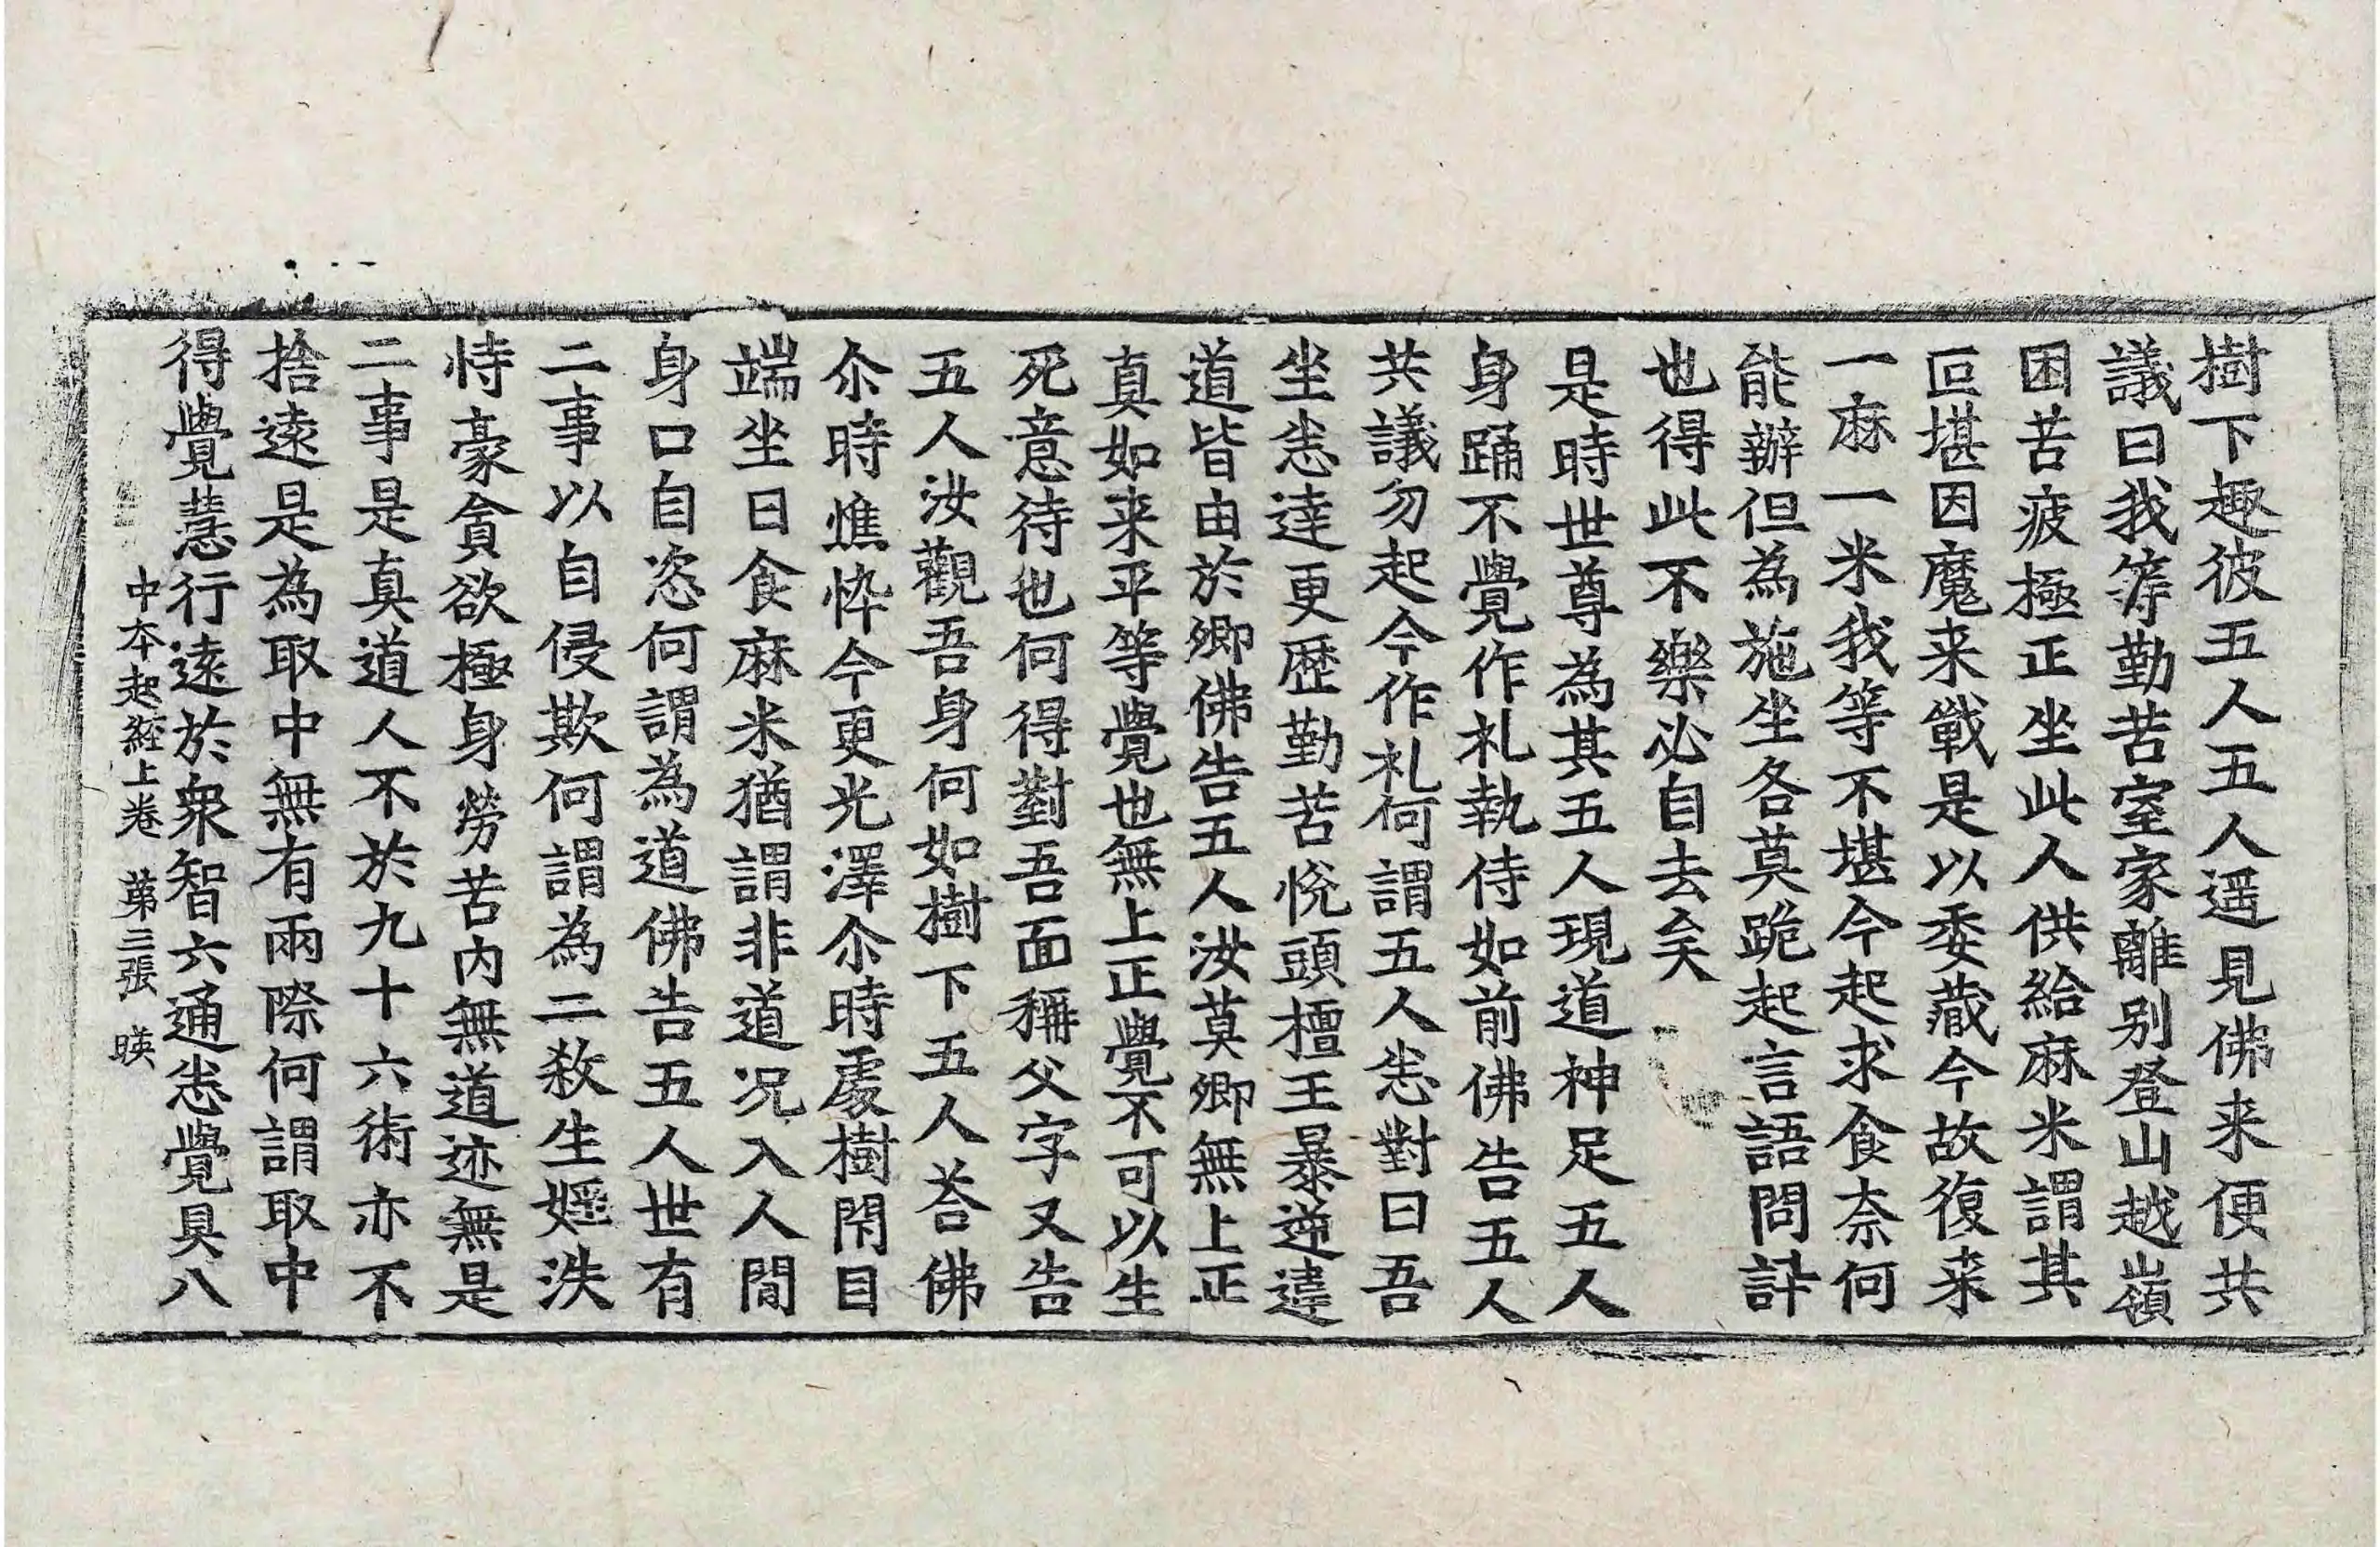 樹下趣彼五人五人遥見佛来便共
議曰我等勤苦室家離别登山越嶺
困苦疲極正坐此人供給麻米謂其
叵堪因魔来戰是以委蔵今故復来
一麻一米我等不堪今起求食奈何
能辦但為施坐各莫跪起言語問訊
也得此不樂必自去矣
是時世尊為其五人現道神足五人
身踊不覺作礼執侍如前佛告五人
共議勿起今作礼何謂五人悉對曰吾
坐悉達更歴勤苦恱頭檀王暴逆違
道皆由於卿佛告五人汝莫卿無上正
真如来平等覺也無上正覺不可以生
死意待也何得對吾面稱父字又告
五人汝觀吾身何如樹下五人荅佛
尒時憔悴今更光澤尒時處樹閇目
端坐日食麻米猶謂非道况入人間
身口自恣何謂為道佛告五人世有
二事以自侵欺何謂為二殺生婬泆
恃豪貪欲極身勞苦内無道迹無是
二事是真道人不於九十六術亦不
捨遠是為取中無有兩際何謂取中
得覺慧行遠於衆智六通悉覺具八
中本起經上卷 第三張 暎